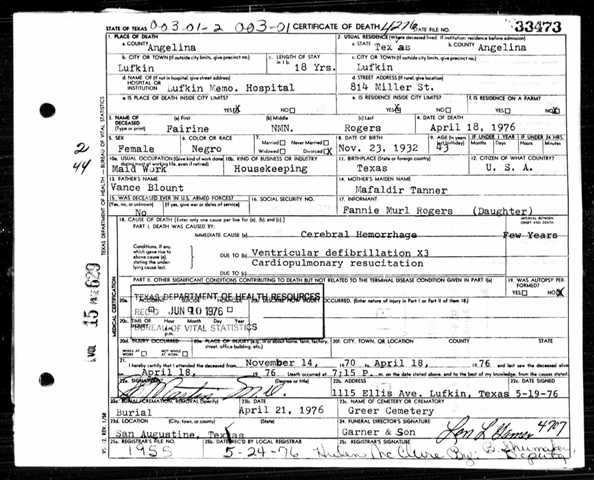 STATE OF TEXAS 003.01-2 003-01 CERTIFICATE OF DEATH 4276 STATE FILE NO. 33473
1. PLACE OF DEATH 2. USUAL RESIDENCE (Where deceased lived. If institution: residence before admission)
a. COUNTY Angelina a. STATE Texas b. COUNTY Angelina
b. CITY OR TOWN (If outside city limits, give precinct no.) c. LENGTH OF STAY in 1 b. c. CITY OR TOWN (If outside city limits, give precinct no.)
Lufkin 18 Yrs. Lufkin
d. NAME OF (If not in hospital, give street address) HOSPITAL OR INSTITUTION Lufkin Memo. Hospital d. STREET ADDRESS (If rural, give location) 814 Miller St.
e. IS PLACE OF DEATH INSIDE CITY LIMITS? e. IS RESIDENCE INSIDE CITY LIMITS? f. IS RESIDENCE ON A FARM?
YES X NO YES X NO YES NO X
3. NAME OF DECEASED (Type or print) (a) First (b) Middle (c) Last 4. DATE OF DEATH
Fairine NMN. Rogers April 18, 1976
5. SEX 6. COLOR OR RACE 7. Married Never Married Widowed Divorced X 8. DATE OF BIRTH 9. AGE (In years last birthday) IF UNDER 1 YEAR Months Days IF UNDER 24 HRS. Hours Minutes
Female Negro Nov. 23, 1932 43
10a. USUAL OCCUPATION (Give kind of work done 10b. KIND OF BUSINESS OR INDUSTRY 11. BIRTHPLACE (State or foreign country) 12. CITIZEN OF WHAT COUNTRY?
Maid Work Housekeeping Texas U. S. A.
13. FATHER'S NAME 14. MOTHER'S MAIDEN NAME
Vance Blount Mafaldir Tanner
15. WAS DECEASED EVER IN U.S. ARMED FORCES? 16. SOCIAL SECURITY NO. 17. INFORMANT
(Yes, no, or unknown) (If yes, give war or dates of service)
No Fannie Murl Rogers (Daughter)
18. CAUSE OF DEATH [Enter only one cause per line for (a), (b), and (c).] INTERVAL BETWEEN ONSET AND DEATH
PART I. DEATH WAS CAUSED BY:
IMMEDIATE CAUSE (a) Cerebral Hemorrhage Few Years
Conditions, if any, which gave rise to above cause (a), stating the underlying cause last.
DUE TO (b) Ventricular defibrillation X3
DUE TO (c) Cardiopulmonary resucitation
PART II. OTHER SIGNIFICANT CONDITIONS CONTRIBUTING TO DEATH BUT NOT RELATED TO THE TERMINAL DISEASE CONDITION GIVEN IN PART I(a) 19. WAS AUTOPSY PERFORMED?
YES NO X
20a. ACCIDENT SUICIDE HOMICIDE 20b. DESCRIBE HOW INJURY OCCURRED. (Enter nature of injury in Part I or Part II of item 18.)
TEXAS DEPARTMENT OF HEALTH RESOURCES
REC'D JUN 10 1976
BUREAU OF VITAL STATISTICS
20c. TIME OF Hour Month Day Year
20d. INJURY OCCURRED 20e. PLACE OF INJURY (e.g., in or about home, farm, factory, street, office building, etc.) 20f. CITY, TOWN, OR LOCATION COUNTY STATE
WHILE AT WORK NOT WHILE AT WORK
21. I hereby certify that I attended the deceased from November 14, 1970 to April 18, 1976 and last saw the deceased alive
on April 18, 1976 Death occurred at 7:15 P. m. on the date stated above; and to the best of my knowledge, from the causes stated.
22a. SIGNATURE (Degree or title) 22b. ADDRESS 22c. DATE SIGNED
M.D. 1115 Ellis Ave. Lufkin, Texas 5-19-76
23a. BURIAL, CREMATION, REMOVAL (Specify) 23b. DATE 23c. NAME OF CEMETERY OR CREMATORY
Burial April 21, 1976 Greer Cemetery
23d. LOCATION (City, town, or county) (State) 24. FUNERAL DIRECTOR'S SIGNATURE
San Augustine, Texas Garner & Son 4707
25a. REGISTRAR'S FILE NO. 25b. DATE REC'D BY LOCAL REGISTRAR 25c. REGISTRAR'S SIGNATURE
1955 5-24-76 Helen McClure By: Deputy
TEXAS DEPARTMENT OF HEALTH — BUREAU OF VITAL STATISTICS
MEDICAL CERTIFICATION
2
44
VOL 15 PAGE 629
VS-12 REV. 1/58